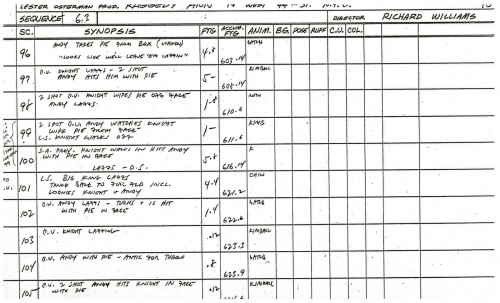 LESTER OSTERMAN PROD. RAGGEDY ANN 14 WEST 44TH ST. N.Y.C.
SEQUENCE 6.3 DIRECTOR RICHARD WILLIAMS
SC. SYNOPSIS FTG ACCUM. FTG ANIM. BG. POSE RUFF C.U. COL.
96 ANDY TAKES PIE FROM BOX
"LOOKS LIKE WE'LL LEAVE 'EM LAFFIN" 4.8 603.14
97 C.U. KNIGHT LAFFS - 2 SHOT
ANDY HITS HIM WITH PIE 5- 608.14 KIMBALL
98 2 SHOT O.U. KNIGHT WIPES PIE OFF FACE
ANDY LAFFS. 1.8 610.6
99 2 SHOT O.U. ANDY WATCHES KNIGHT
WIPE PIE FROM FACE
L.S. KNIGHT WALKS OFF 1- 611.6
100 S.A. PANY. KNIGHT WALKS IN HITS ANDY
WITH PIE IN FACE
LAFFS - O.S. 5.8 616.14 K
101 L.S. BIG KING LAFFS
TAKING BACK TO FULL FLD INCL.
LOONIES KNIGHT + ANDY 4.4 621.2 CHIN
102 C.U. ANDY LAFFS - TURNS + IS HIT
WITH PIE IN FACE 1.4 622.6
103 C.U. KNIGHT LAFFING .12 623.2 KIMBALL
104 C.U. ANDY WITH PIE - ANTIC FOR THROW .8 623.9
105 C.U. 2 SHOT ANDY HITS KNIGHT IN FACE
WITH PIE .12 KIMBALL